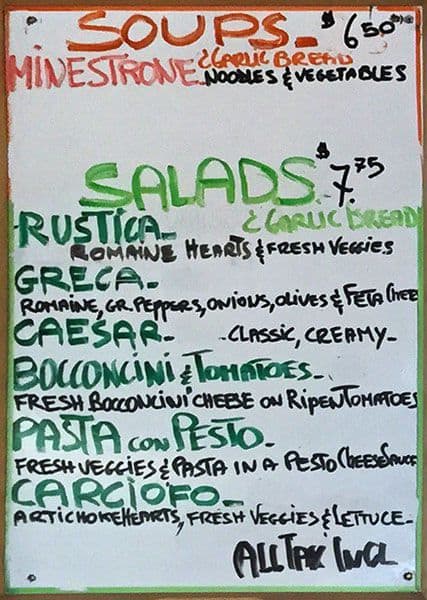 SOUPS- $6.50
MINESTRONE - ¿ GARLIC BREAD
NOODLES & VEGETABLES
SALADS. $7.75
RUSTICA- ¿ GARLIC BREAD
ROMAINE HEARTS & FRESH VEGGIES
GRECA-
ROMAINE, GR. PEPPERS, ONIONS, OLIVES & FETA CHEE
CAESAR- -CLASSIC, CREAMY-
BOCCONCINI & TOMATOES-
FRESH BOCCONCINI CHEESE ON RIPEN TOMATOES
PASTA CON PESTO-
FRESH VEGGIES & PASTA IN A PESTO CHEESE SAUCE
CARCIOFO-
ARTICHOKE HEARTS, FRESH VEGGIES & LETTUCE-
ALL TAX INCL